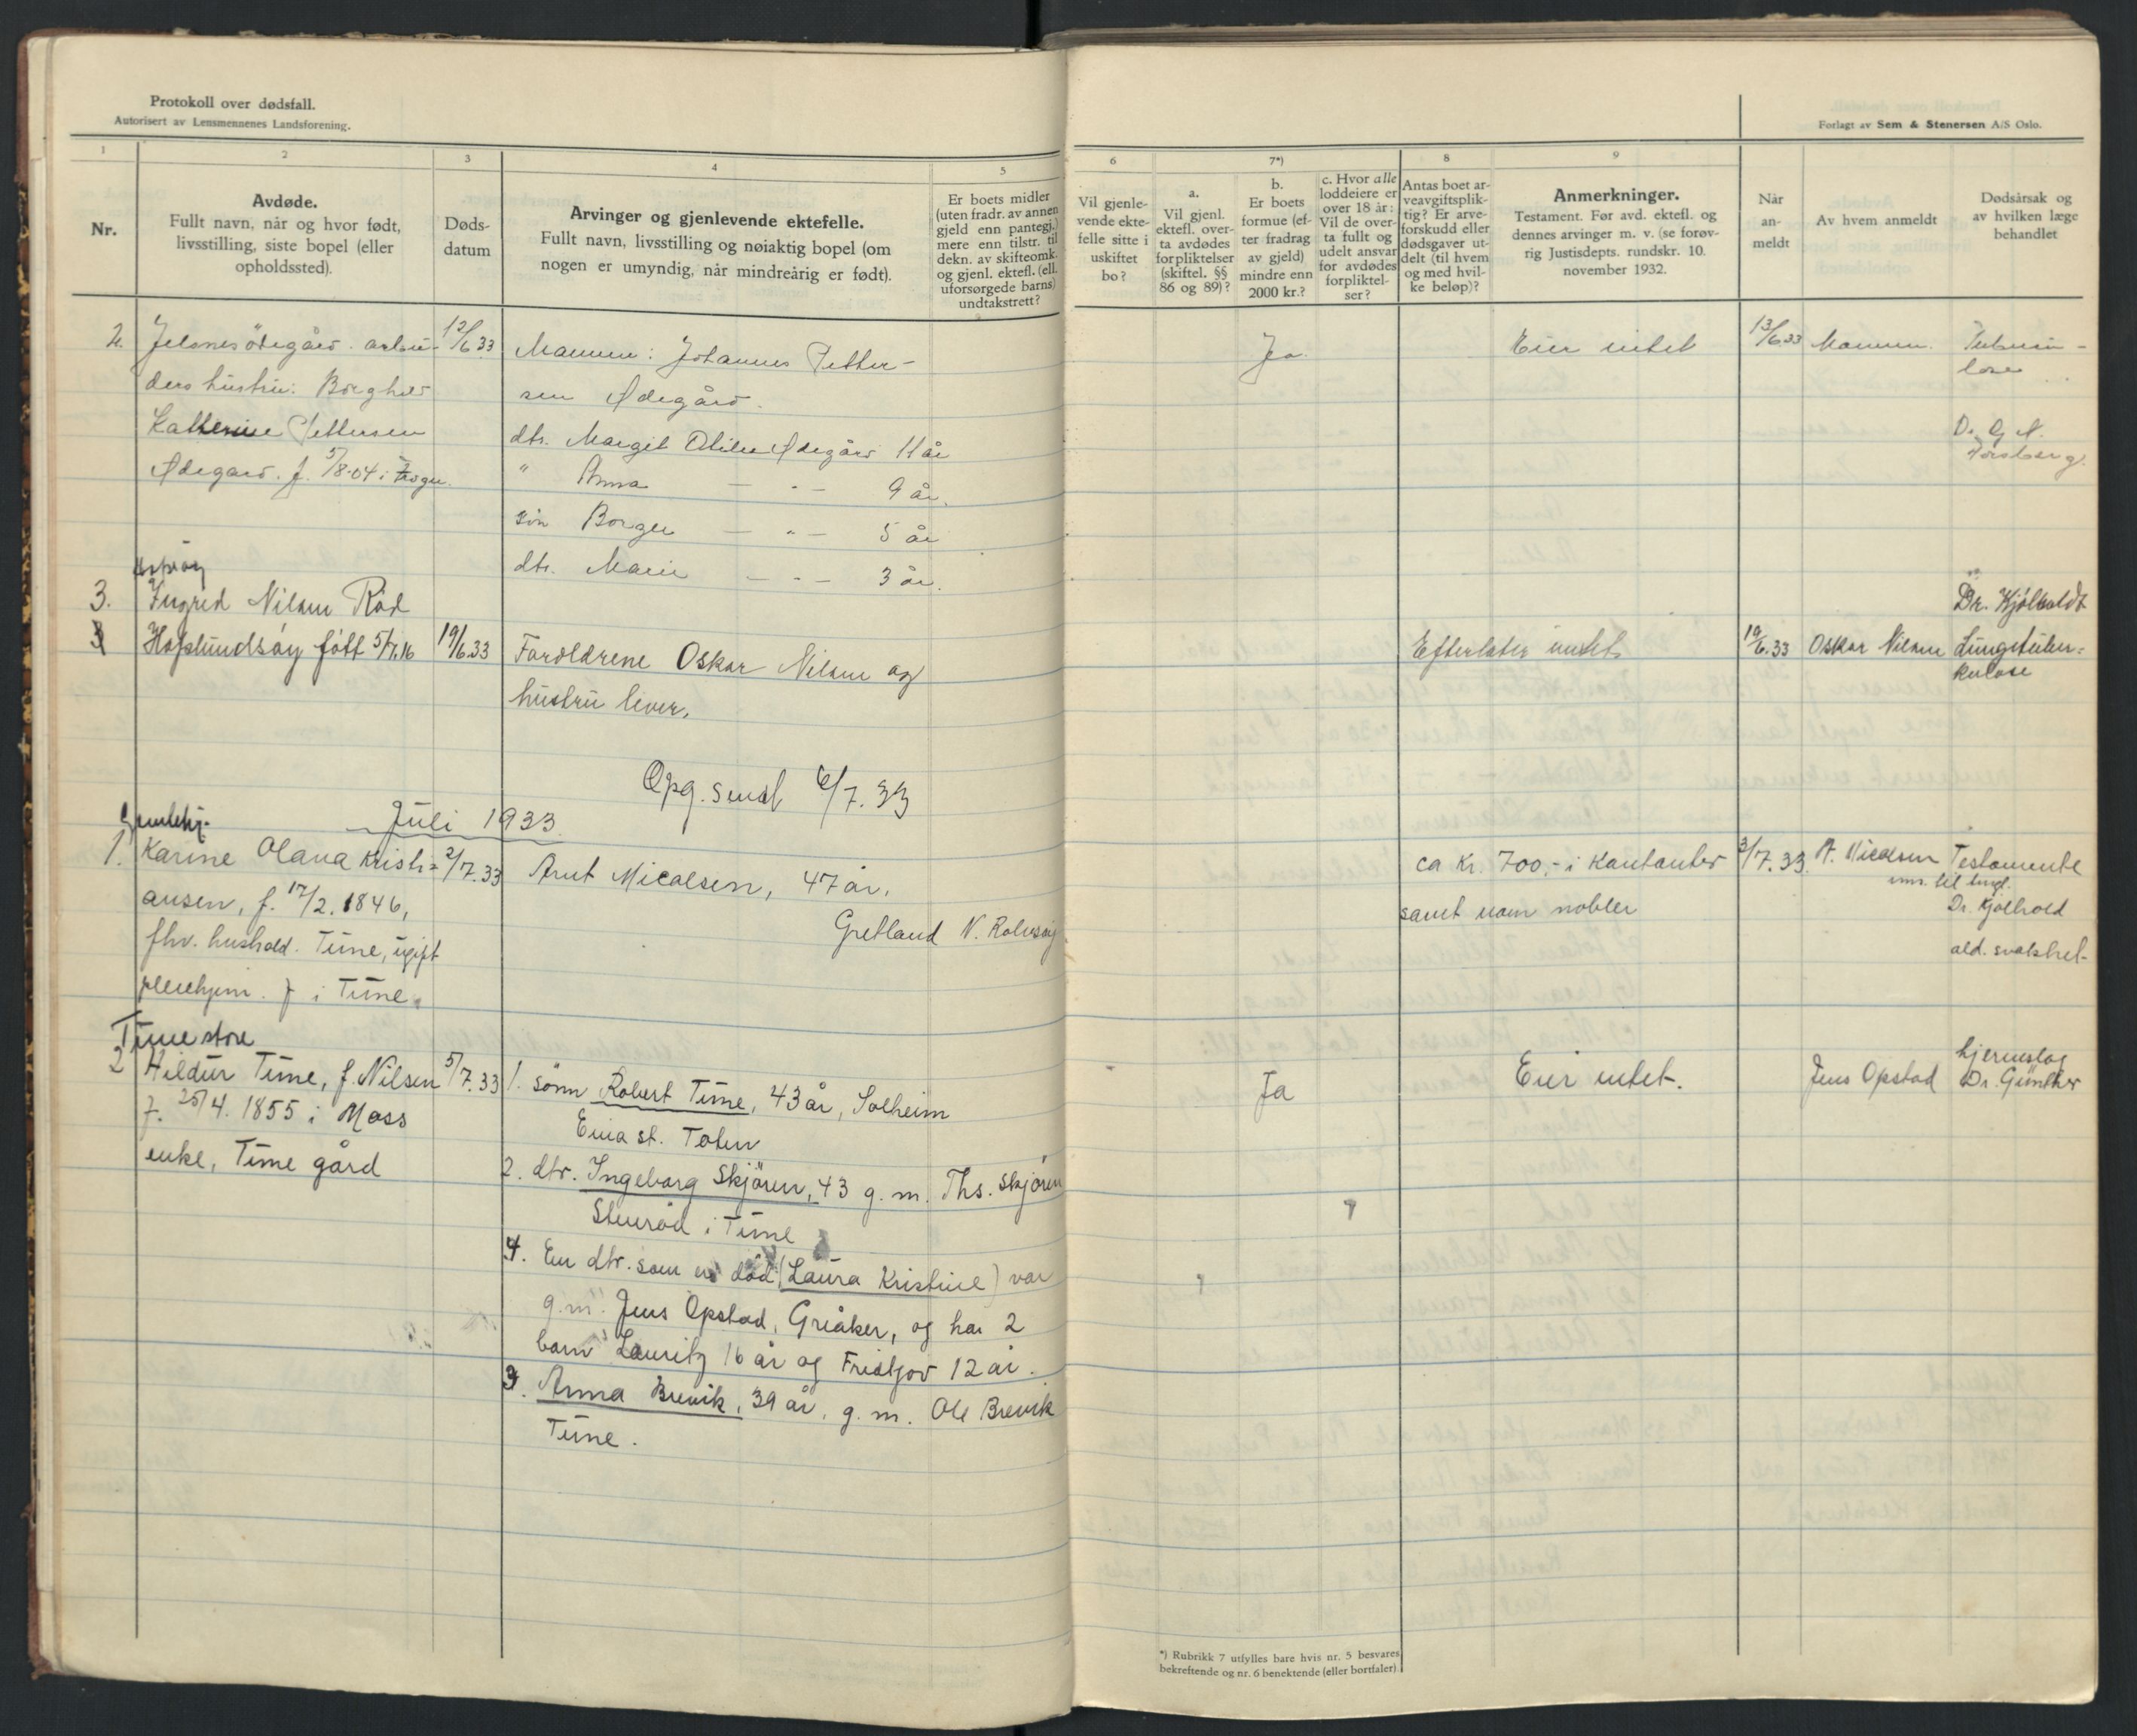 Protokoll over dødsfall.
Autorisert av Lensmennenes Landsforening.
Forlagt av Sem & Stenersen A/S Oslo.
1
2
3
4
5
6
7*)
8
9
Nr.
Avdøde.
Fullt navn, når og hvor født,
livsstilling, siste bopel (eller
opholdssted).
Døds-
datum
Arvinger og gjenlevende ektefelle.
Fullt navn, livsstilling og nøiaktig bopel (om
nogen er umyndig, når mindreårig er født).
Er boets midler
(uten fradr. av annen
gjeld enn pantegj.)
mere enn tilstr. til
dekn. av skifteomk.
og gjenl. ektefl. (ell.
uforsørgede barns)
undtakstrett?
Vil gjenle-
vende ekte-
felle sitte i
uskiftet
bo?
a.
Vil gjenl.
ektefl. over-
ta avdødes
forpliktelser
(skiftel. §§
86 og 89)?
b.
Er boets
formue (ef-
ter fradrag
av gjeld)
mindre enn
2000 kr.?
c. Hvor alle
loddeiere er
over 18 år:
Vil de over-
ta fullt og
udelt ansvar
for avdødes
forpliktel-
ser?
Antas boet ar-
veavgiftsplik-
tig? Er arve-
forskudd eller
dødsgaver ut-
delt (til hvem
og med hvil-
ke beløp)?
Anmerkninger.
Testament. Før avd. ektefl. og
dennes arvinger m. v. (se forøv-
rig Justisdepts. rundskr. 10.
november 1932.
Når
an-
meldt
Av hvem anmeldt
Dødsårsak og
av hvilken læge
behandlet
2.
Jelsnesödegård. arbei-
ders hustru: Borghild
Katherine Pettersen
Ødegård. f. 5/8-04 i
12/6 33
Mannen: Johannes Petter-
sen Ødegård.
dtr. Margit Otilie Ødegård 11 år
" Anna — " — 9 år.
sön Borger — " — 5 år
dtr. Marie — " — 3 år.
Ja
Eier intet
13/6 33
Mannen.
Tuberku-
lose
Dr. O. N.
3.
Ingrid Nilsen Röd
Hafslundsöy født 5/7.16
19/6.33
Foreldrene Oskar Nilsen og
hustru lever.
Efterlater intet.
19/6.33
Oskar Nilsen
Dr. Kjölboldt
Lungetuber=
kulose
Opg. sendt 6/7.33
Juli 1933.
1.
Karine Olava Kristi=
ansen, f. 17/2. 1846,
fhv. hushold. Tune, ugift
pleiehjem. f i Tune.
2/7.33
Arnt Micalsen, 47 år.
Gretland N. Rolvsöy
ca kr. 700,- i kontanter
samt noen möbler
3/7.33.
A. Micalsen
Testamente
inns. til
Dr. Kjölbold
ald. svakhet
Tune store
2
Hildur Tune, f. Nilsen
f. 25/4. 1855 i Moss
enke, Tune gård
5/7.33
1. sönn Robert Tune, 43 år, Solheim
Eina st. Toten
2. dtr. Ingeborg Skjören, 43 g. m. Ths. Skjören
Stenröd i Tune
4. En dtr. som er död (Laura Kristine) var
g.m. Jens Opstad, Greåker, og har 2
barn Lauritz 16 år og Fridtjov 12 år.
3. Anna Brevik, 39 år, g. m. Ole Brevik
Tune.
Ja
Eier intet.
Jens Opstad
hjerneslag
Dr. Günther
*) Rubrikk 7 utfylles bare hvis nr. 5 besvares
bekreftende og nr. 6 benektende (eller bortfaler).